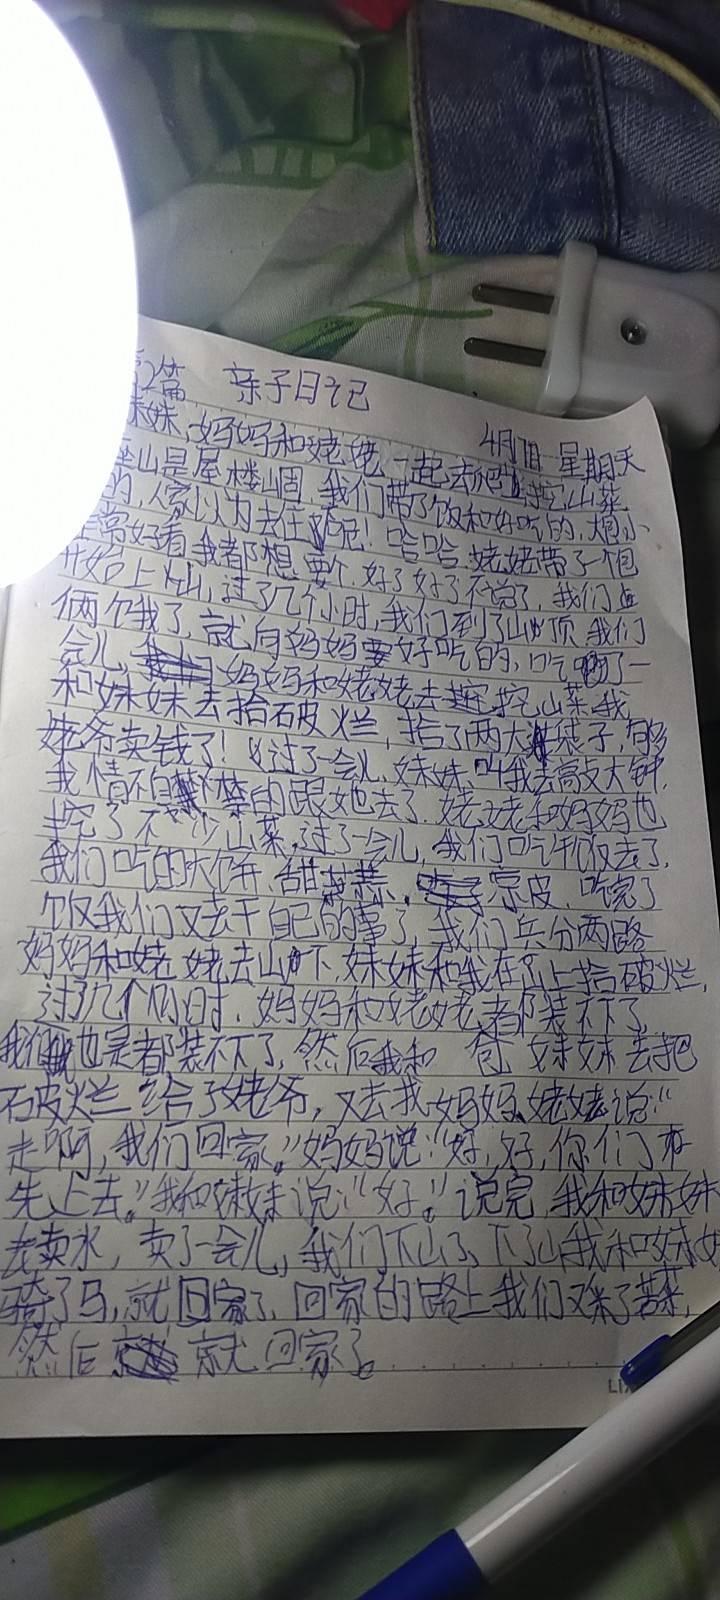 2篇 亲子日记
4月7日 星期天
妹妹,妈妈和姥姥一起去爬山挖山菜
山是屋楼崮,我们带了饭和好吃的,大包小
的,人家以为去住院呢!哈哈,姥姥带了一个包
非常好看,我都想要个,好了好了不说了,我们
开始上山,过了几个小时,我们到了山顶,我们
俩个饿了,就向妈妈要好吃的,吃了一
会儿,妈妈和姥姥去挖山菜,我
和妹妹去拾破烂,拾了两大袋子,够
姥爷卖钱了!又过了一会儿,妹妹叫我去敲大钟,
我情不自禁的跟她去了,姥姥和妈妈也
挖了不少山菜,过了一会儿,我们吃午饭去了,
我们吃的大饼、甜蒜、凉皮,吃完了
饭我们又去干自己的事了,我们兵分两路
妈妈和姥姥去山下,妹妹和我在山上拾破烂,
过了几个小时,妈妈和姥姥都装不下了
我们也是都装不下了,然后我和 妹妹去把
破烂给了姥爷,又去找妈妈、姥姥说:“
走啊,我们回家。”妈妈说:“好,好,你们
先上去。”我和妹妹说:“好。”说完,我和妹妹
去卖水,卖了一会儿,我们下山了,下了山我和妹妹
骑了马,就回家了,回家的路上我们又采了苦菜,
然后就回家了。